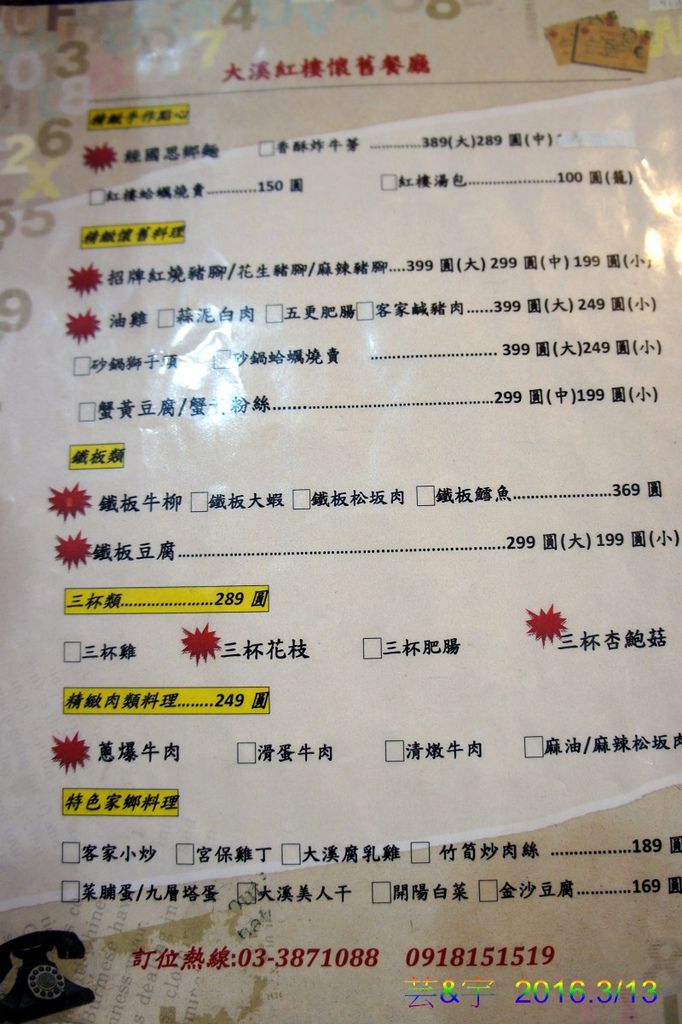 大溪紅樓懷舊餐廳
精緻手作點心
經國思鄉麵 □香酥炸牛蒡 ............389(大)289 圓(中)
□紅樓蛤蠣燒賣............150 圓 □紅樓湯包......................100 圓(籠)
精緻懷舊料理
招牌紅燒豬腳/花生豬腳/麻辣豬腳....399 圓(大) 299 圓(中) 199 圓(小)
油雞 □蒜泥白肉 □五更肥腸 □客家鹹豬肉......399 圓(大) 249 圓(小)
□砂鍋獅子頭 □砂鍋蛤蠣燒賣 ............................ 399 圓(大)249 圓(小)
□蟹黃豆腐/蟹 粉絲..................................................299 圓(中)199 圓(小)
鐵板類
鐵板牛柳 □鐵板大蝦 □鐵板松坂肉 □鐵板鱈魚......................369 圓
鐵板豆腐..........................................................................299 圓(大) 199 圓(小)
三杯類.....................289 圓
□三杯雞 三杯花枝 □三杯肥腸 三杯杏鮑菇
精緻肉類料理........249 圓
蔥爆牛肉 □滑蛋牛肉 □清燉牛肉 □麻油/麻辣松坂肉
特色家鄉料理
□客家小炒 □宮保雞丁 □大溪腐乳雞 □ 竹筍炒肉絲 ..................189 圓
□菜脯蛋/九層塔蛋 □大溪美人干 □開陽白菜 □金沙豆腐............169 圓
訂位熱線:03-3871088 0918151519
芸&宇 2016.3/13